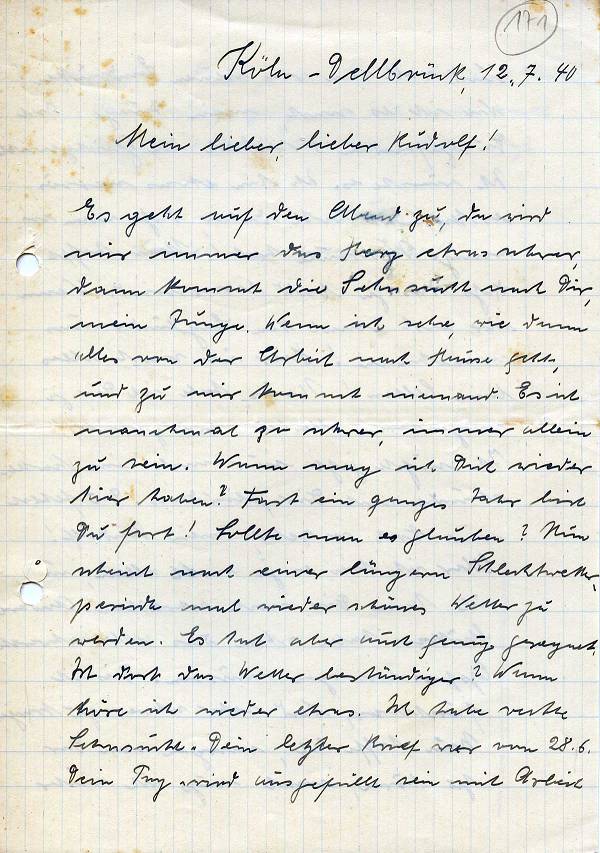 171
Köln-Dellbrück, 12.7.40
Mein lieber, lieber Rudolf!
Es geht auf den Abend zu, da wird
mir immer das Herz etwas schwer,
dann kommt die Sehnsucht nach Dir,
mein Junge. Wenn ich sehe, wie dann
alles von der Arbeit nach Hause geht,
und zu mir kommt niemand. Es ist
manchmal zu schwer, immer allein
zu sein. Wann mag ich Dich wieder
hier haben? Fast ein ganzes Jahr bist
Du fort! Sollte man es glauben? Nun
scheint nach einer längern Schlechtwetter-
periode mal wieder schönes Wetter zu
werden. Es hat aber auch genug geregnet.
Ist dort das Wetter beständiger? Wann
höre ich wieder etwas. Ich habe rechte
Sehnsucht. Dein letzter Brief war vom 28.6.
Dein Tag wird ausgefüllt sein mit Arbeit